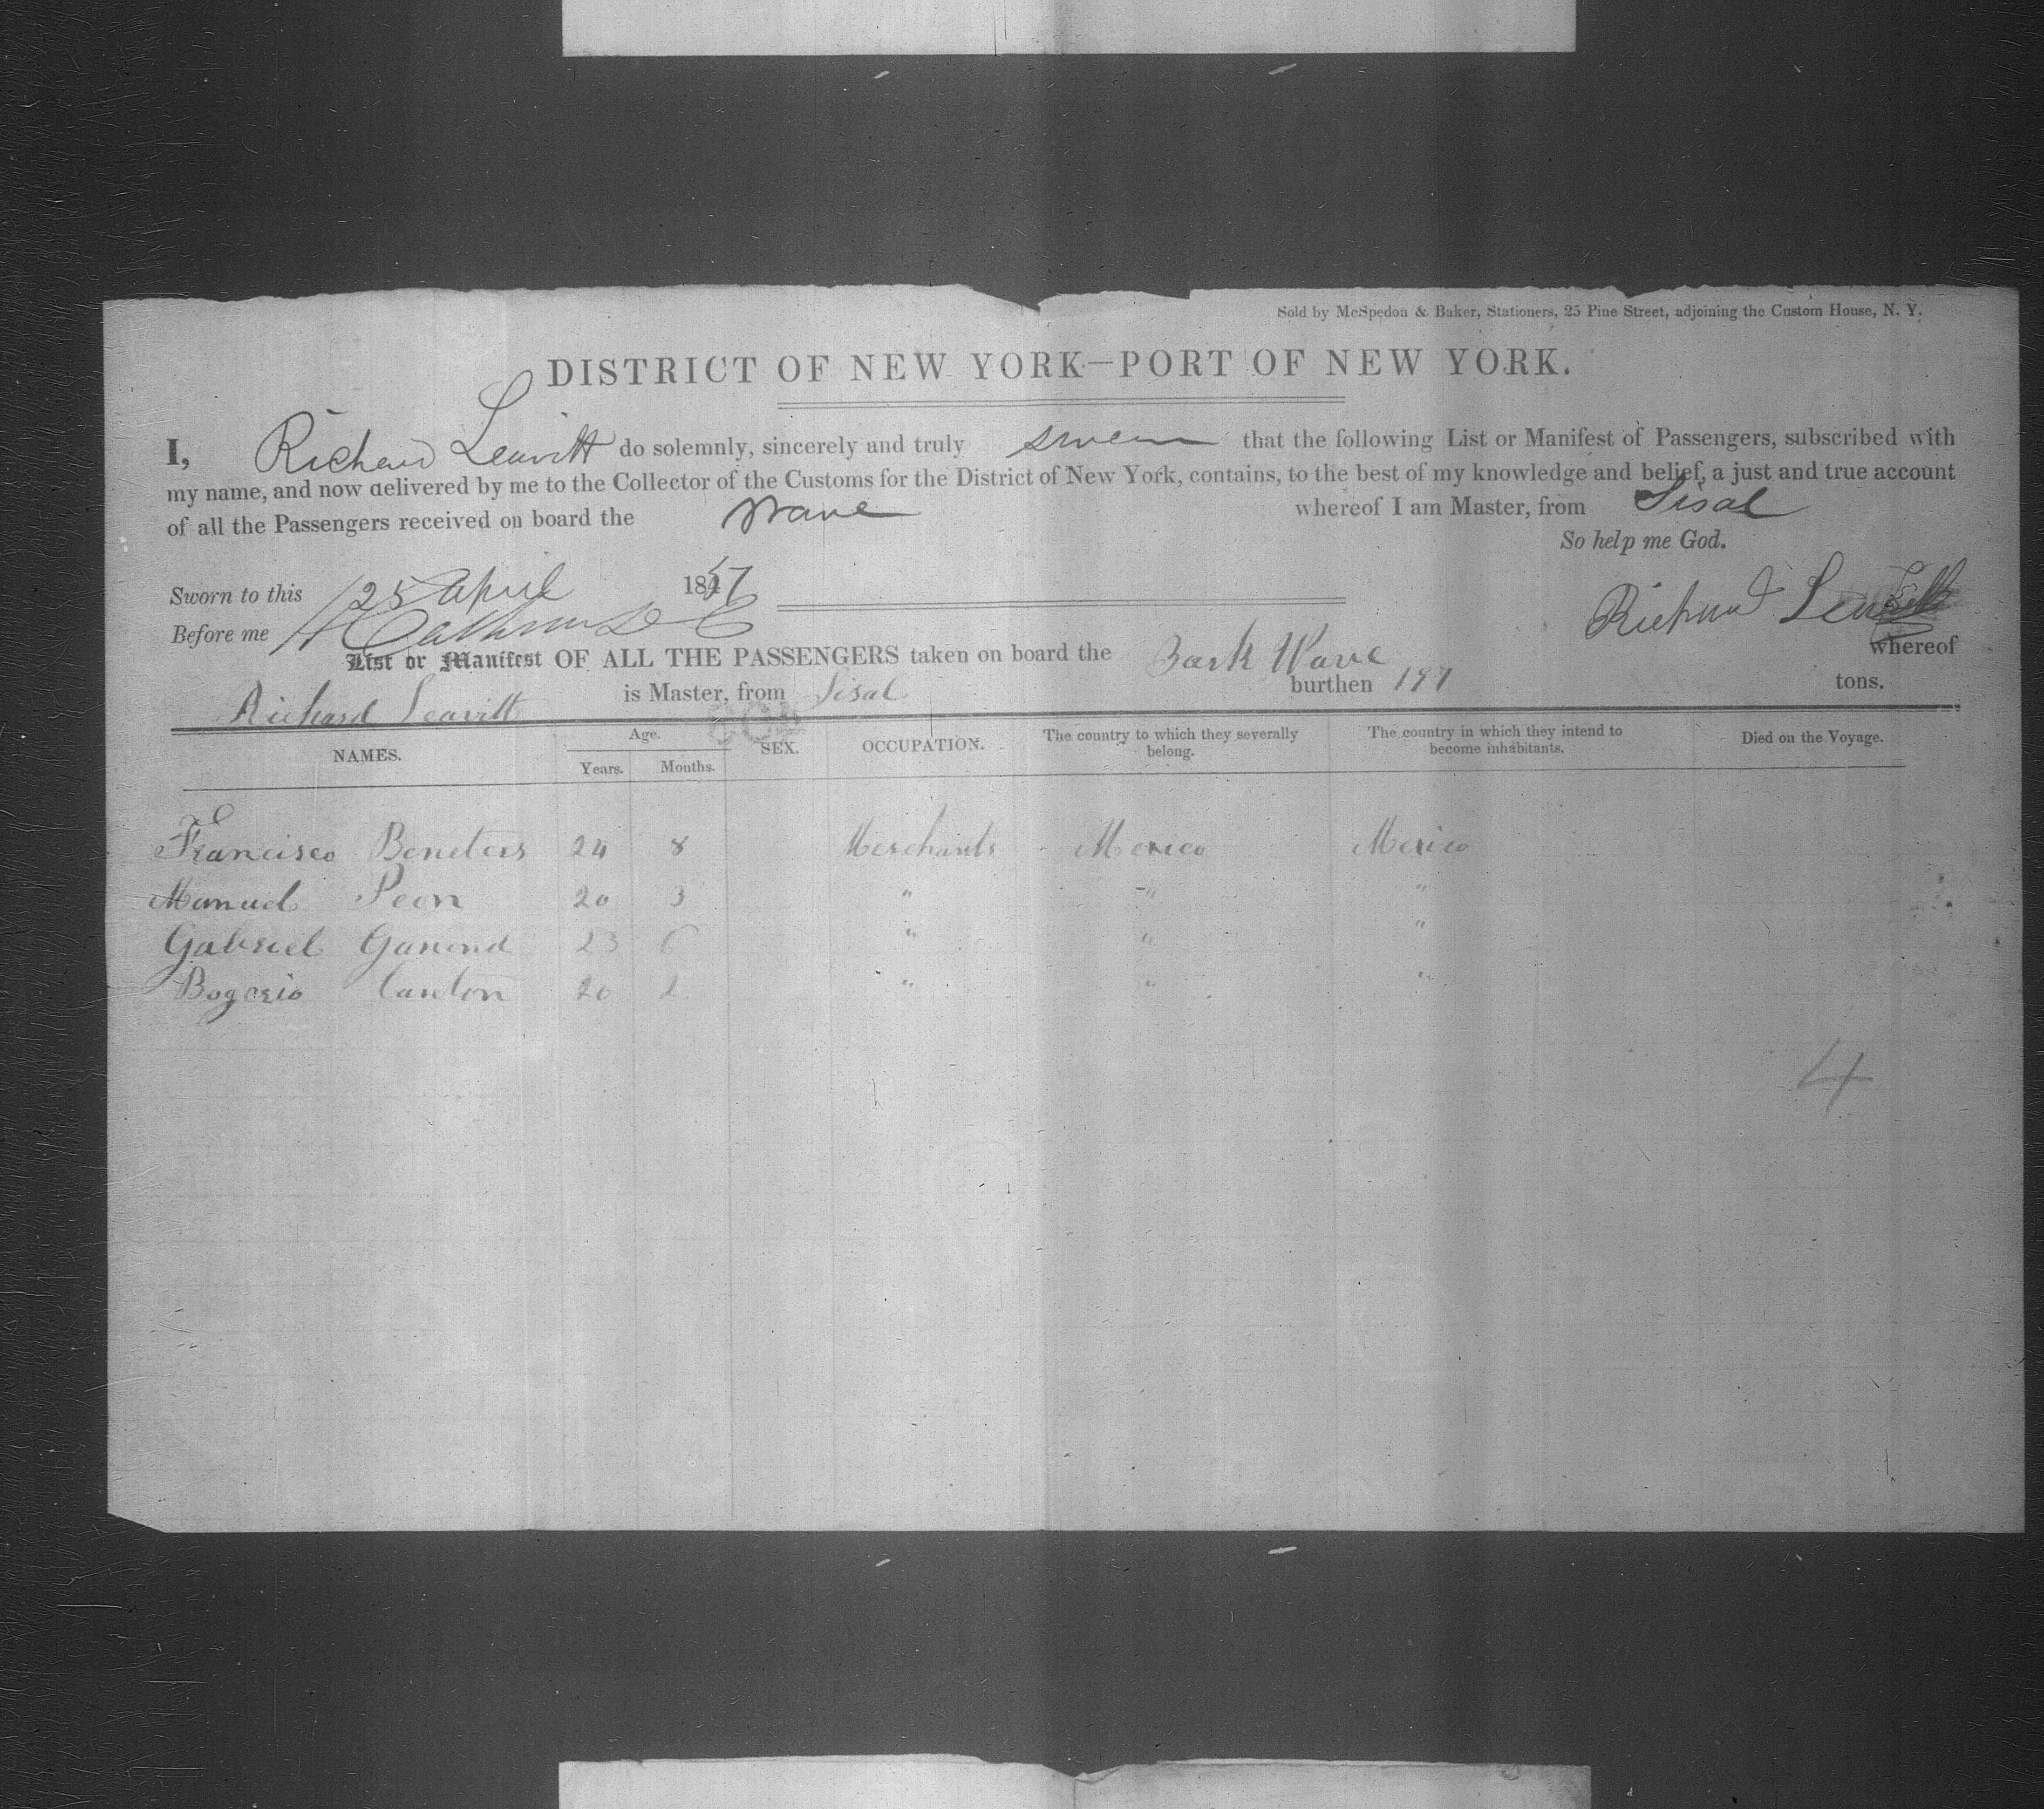 Sold by McSpedon & Baker, Stationers, 25 Pine Street, adjoining the Custom House, N. Y.
DISTRICT OF NEW YORK—PORT OF NEW YORK.
I, Richard Leavitt do solemnly, sincerely and truly swear that the following List or Manifest of Passengers, subscribed with
my name, and now delivered by me to the Collector of the Customs for the District of New York, contains, to the best of my knowledge and belief, a just and true account
of all the Passengers received on board the Wave whereof I am Master, from Sisal
So help me God.
Sworn to this 25 April 1857
Before me
Richard Leavitt
List or Manifest OF ALL THE PASSENGERS taken on board the Bark Wave whereof
Richard Leavitt is Master, from Sisal burthen 197 tons.
NAMES. Age. Years. Months. SEX. OCCUPATION. The country to which they severally belong. The country in which they intend to become inhabitants. Died on the Voyage.
Francisco 24 8 Merchants Mexico Mexico
Manuel Peon 20 3 " " "
Gabriel 23 6 " " "
Canton 20 2 " " "
4